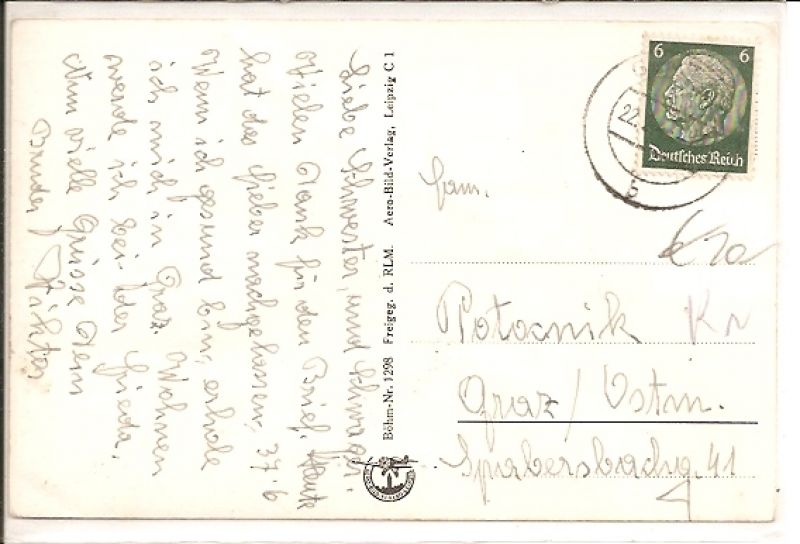 Liebe Schwester, und Schwager.
Vielen Dank für den Brief. Heute
hat das Fieber nachgelassen, 37.6
Wenn ich gesund bin, erhole
ich mich in Graz. Wohnen
werde ich bei der Frieda.
Nun vielle Grüsse Dein
Bruder
Böhm-Nr. 1298 Freigeg. d. RLM. Aero-Bild-Verlag, Leipzig C 1
6 6
Deutsches Reich
22.
b
Fam.
Potocnik
Graz / Ostm.
41